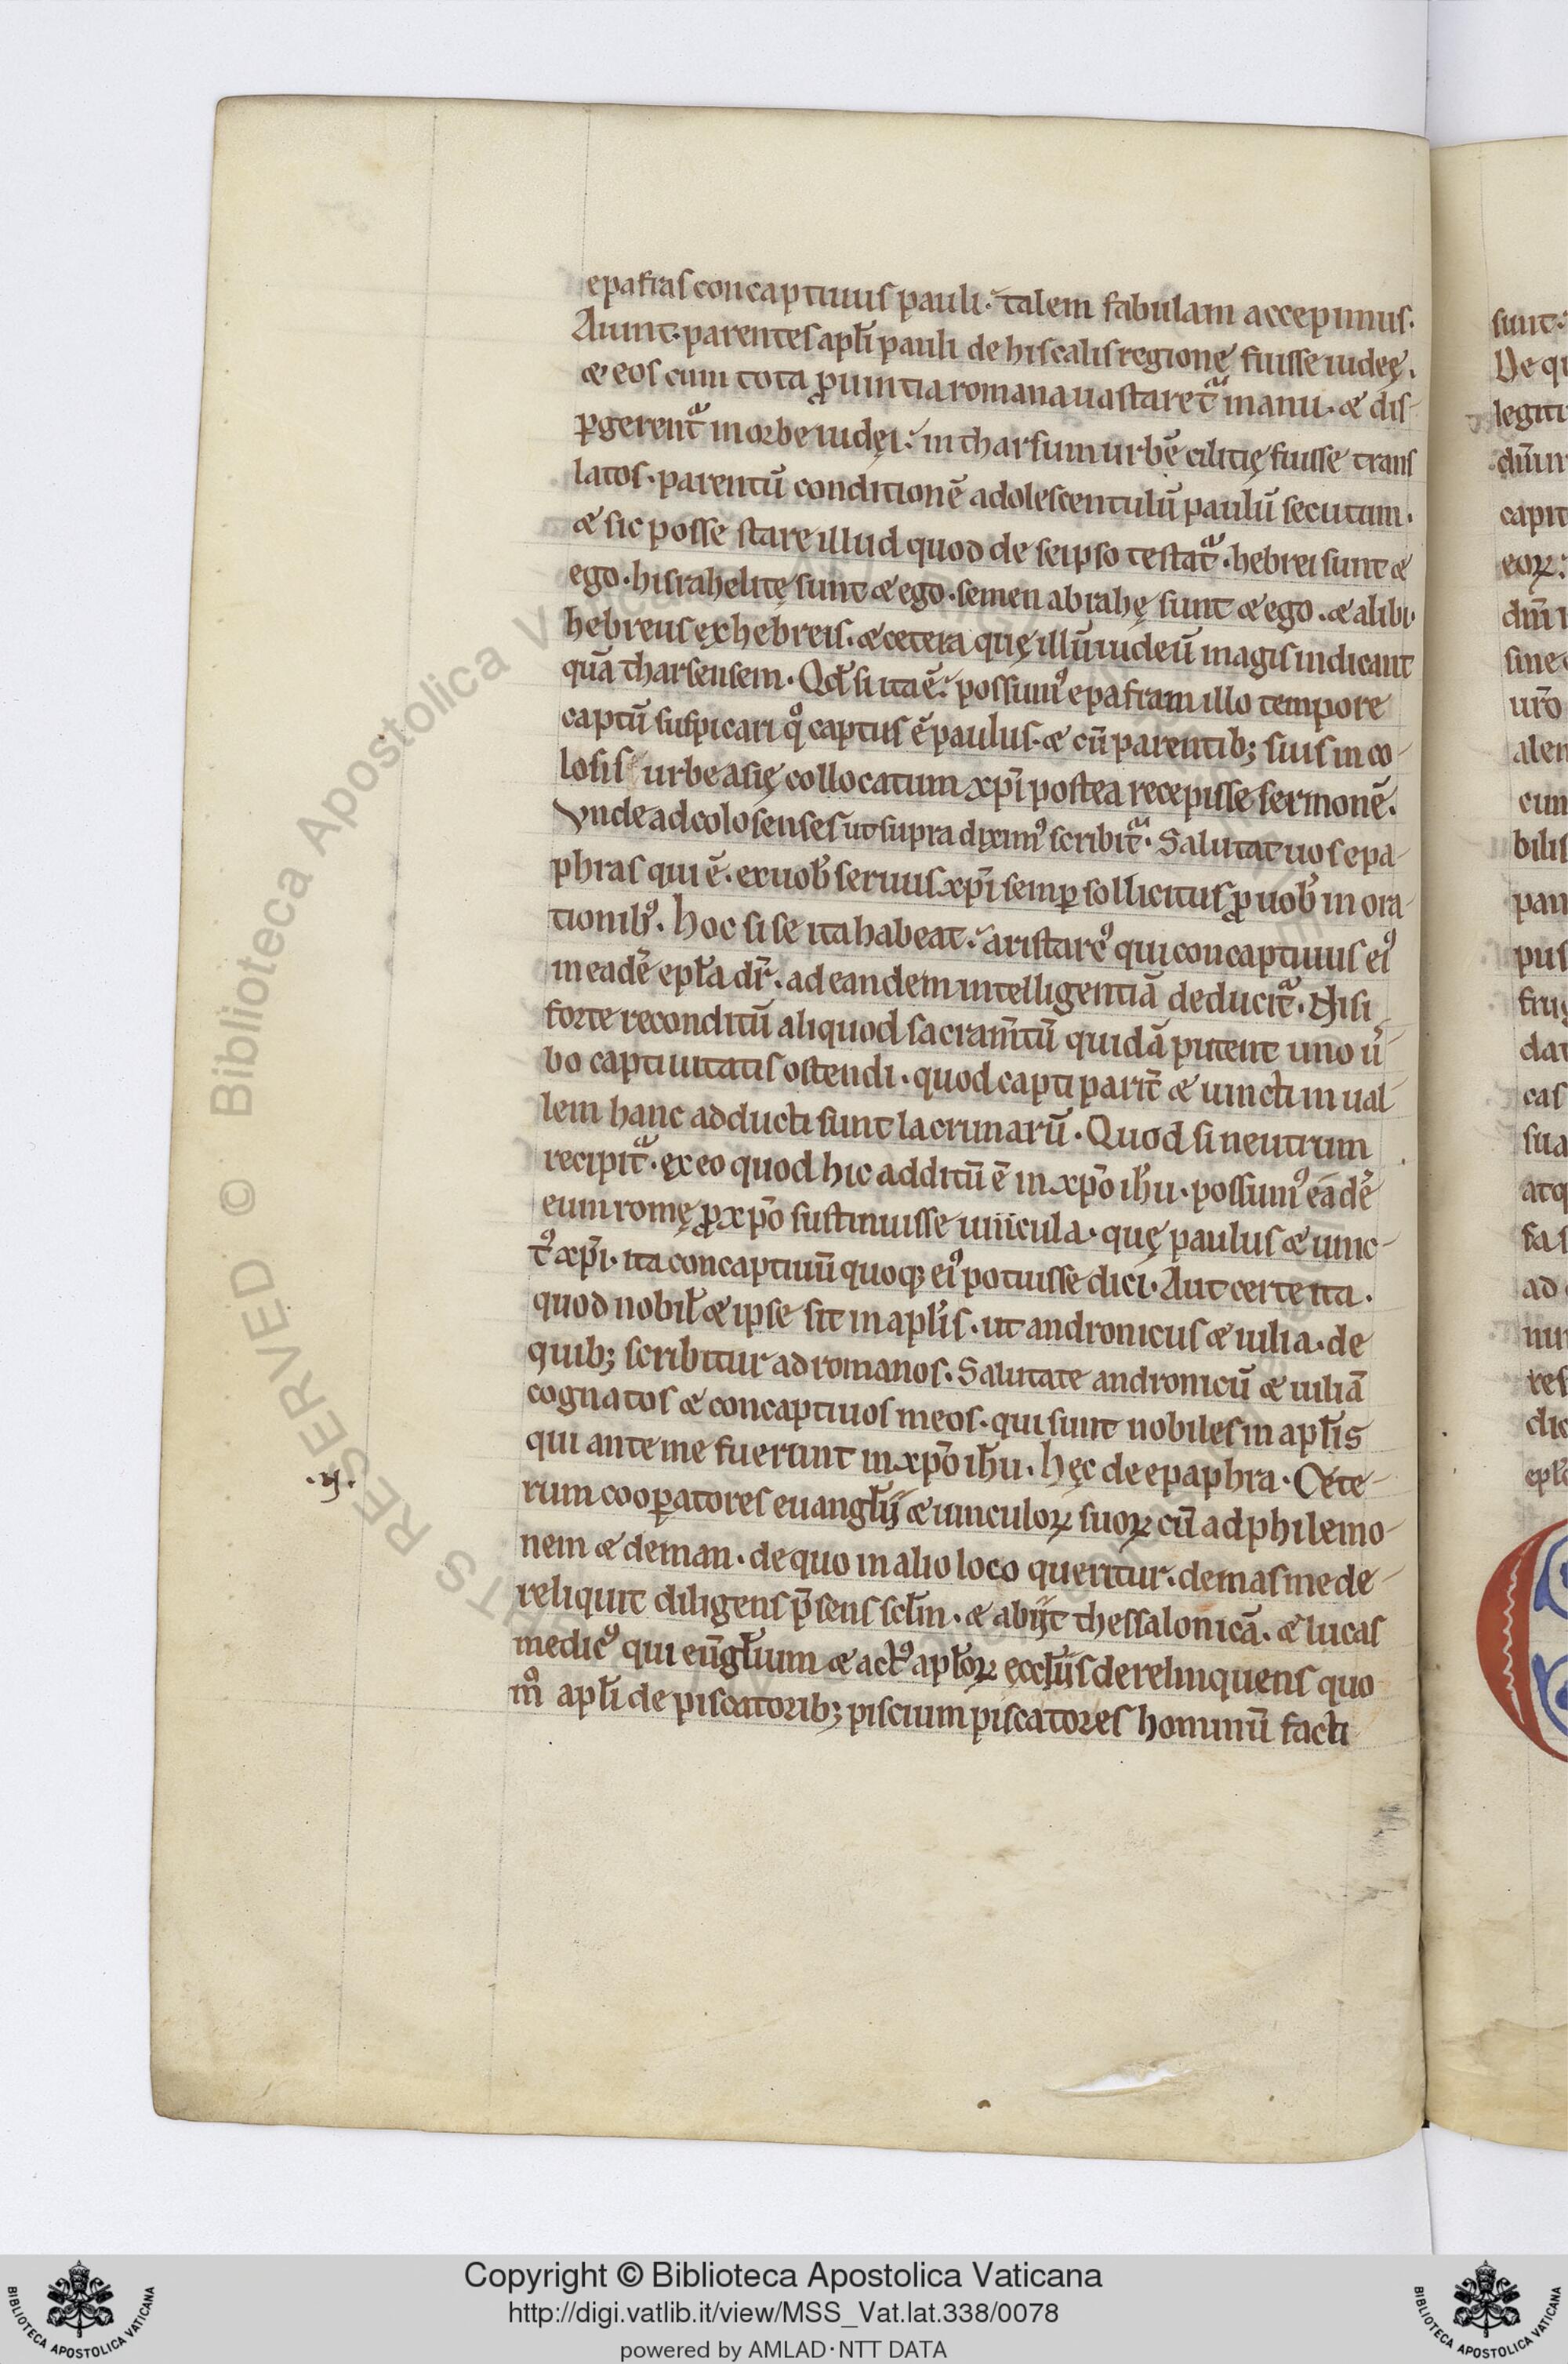 epafras concaptiuus pauli. talem fabulam accepimus.
Aiunt. parentes apłi pauli de hiscalis regionę fuisse iudeę.
& eos cum tota ꝓuintia romana uastaretᷓ manu. & dis-
ꝑgerentᷓ in orbe iudęi. in tharsum urbē cilitię fuisse trans
latos. parentū conditionē adolescentulū paulū secutum.
& sic posse starę illud quod de seipso testatᷓ. hebrei sunt &
ego. hisrahelitę sunt & ego. semen abrahę sunt & ego. & alibi.
hebreus ęx hebreis. & cetera quę illū iudeū magis indicant
quā tharsensem. Qđ si ita ē. possumꝰ epafram illo tempore
captū suspicari qͦ captus ē paulus. & cū parentib; suis in co-
losis urbe asię collocatum xp̄i postea recepisse sermonē.
Vnde ad colosenses ut supra diximꝰ scribitᷓ. Salutat uos epa-
phras qui ē. ex uob̄ seruus xp̄i semꝑ sollicitus ꝓ uob̄ in ora-
tionibꝰ. hoc si se ita habeat. aristarcꝰ qui concaptiuus eiꝰ
in eadē epła dr̄. ad eandem intelligentiā deducitᷓ. Nisi
forte reconditū aliquod sacram̄tū quidā putent uno ū-
bo captiuitatis ostendi. quod capti parit̄ & uincti in ual-
lem hanc adducti sunt lacrimarū. Quod si neutrum
recipitᷓ. ęx eo quod hic additū ē in xp̄o ihu̅. possumꝰ eadē
eum romę ꝓ xp̄o sustinuisse uincula. quę paulus & uinc-
tꝰ xp̄i. ita concaptiuū quoq; eiꝰ potuisse dici. Aut certe ita.
quod nobił & ipse sit in apłis. ut andronicus & iulia. de
quib; scribitur ad romanos. Salutate andronicū & iuliā
cognatos & concaptiuos meos. qui sunt nobiles in apłis
qui ante me fuerunt in xp̄o ihu̅. hęc de epaphra. Cete-
.ij.
rum cooꝑatores euangłij & uinculoꝝ suoꝝ cū ad philemo-
nem & deman. de quo in alio loco queritur. demas me de-
reliquit diligens p̄sens scłm. & abijt thessalonicā. & lucas
medicꝰ qui eūgłium & actꝰ apłoꝝ ęccłiis derelinquens quo
mͦ apłi de piscatorib; piscium piscatores hominū facti
sunt.
De qu
legiti
capit
eoꝝ.
sine
alen
cum
bilis
pau
pus
frug
dat
cas
sua
atq
fa s
ad
res
dic
C
Copyright © Biblioteca Apostolica Vaticana
http://digi.vatlib.it/view/MSS_Vat.lat.338/0078
powered by AMLAD·NTT DATA
BIBLIOTECA APOSTOLICA VATICANA
BIBLIOTECA APOSTOLICA VATICANA